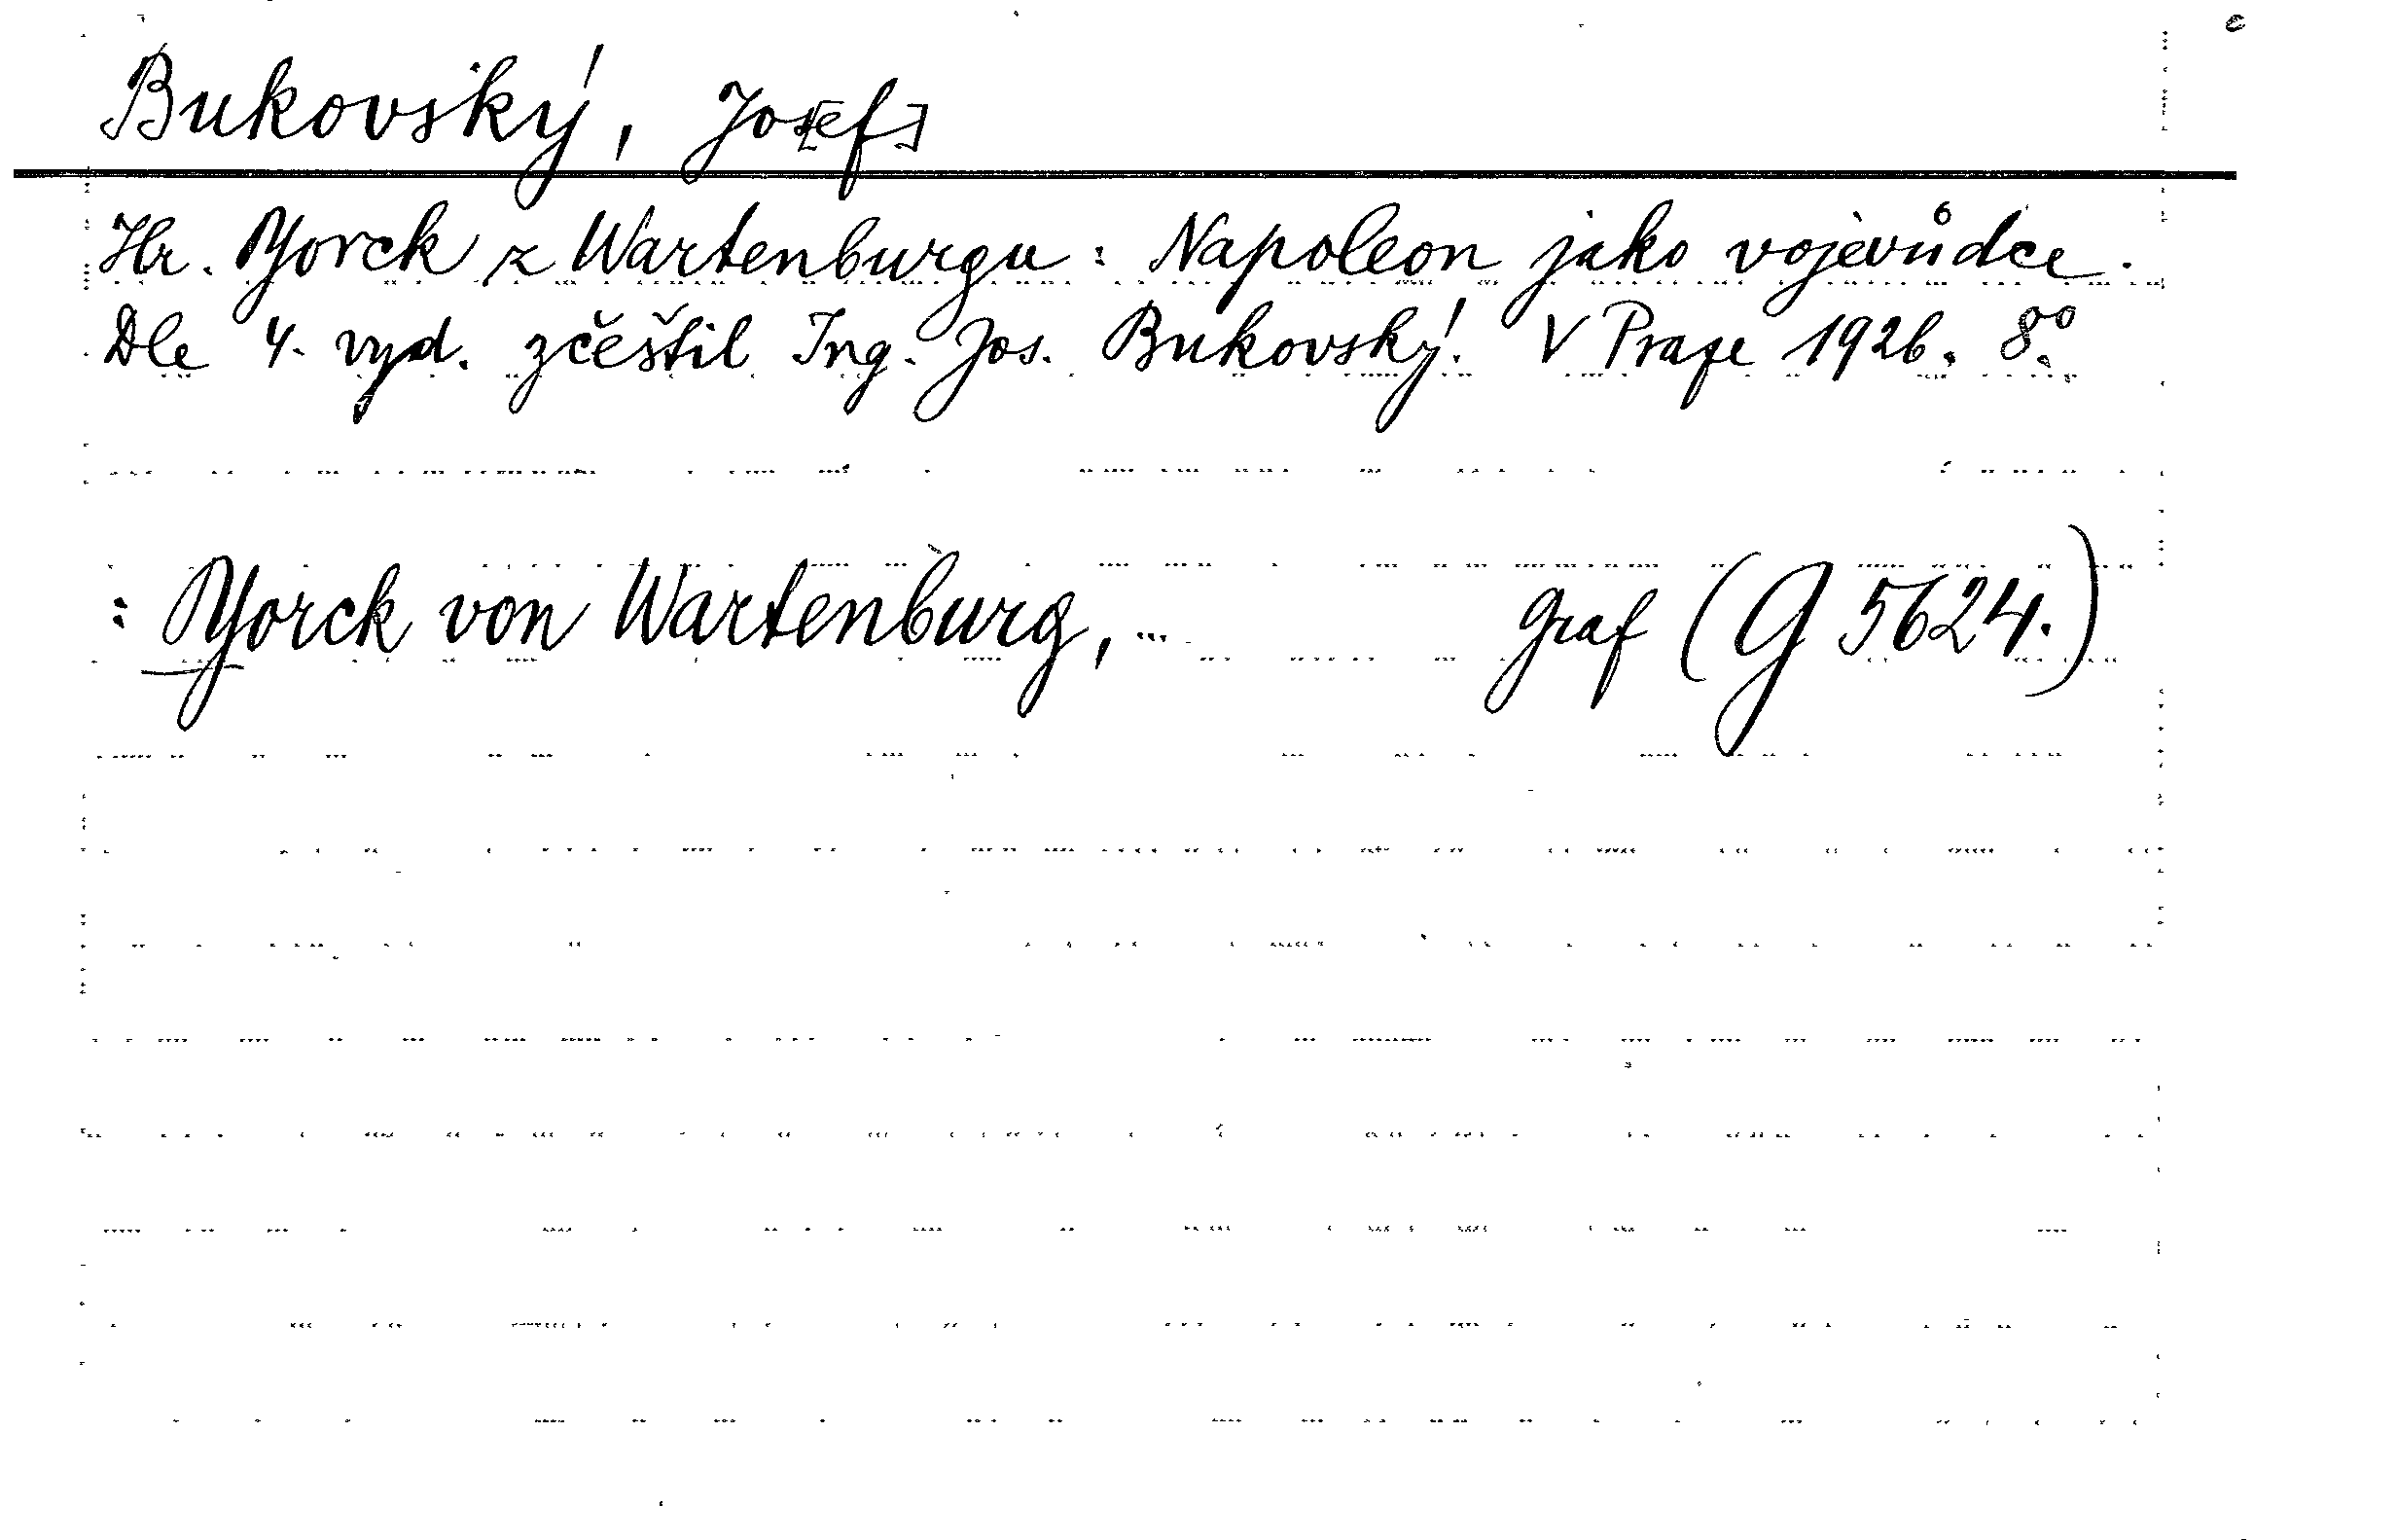 Bukovský, Jos[ef]
Hr. Yorck z Wartenburgu: Napoleon jako vojevůdce.
Dle 4. vyd. zčeštil Ing. Jos. Bukovský. V Praze 1926. 8º.
: Yorck von Wartenburg, ... Graf (G 5624.)